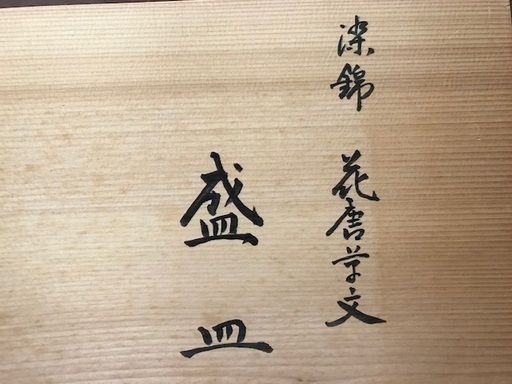 染錦 花唐草文
盛皿